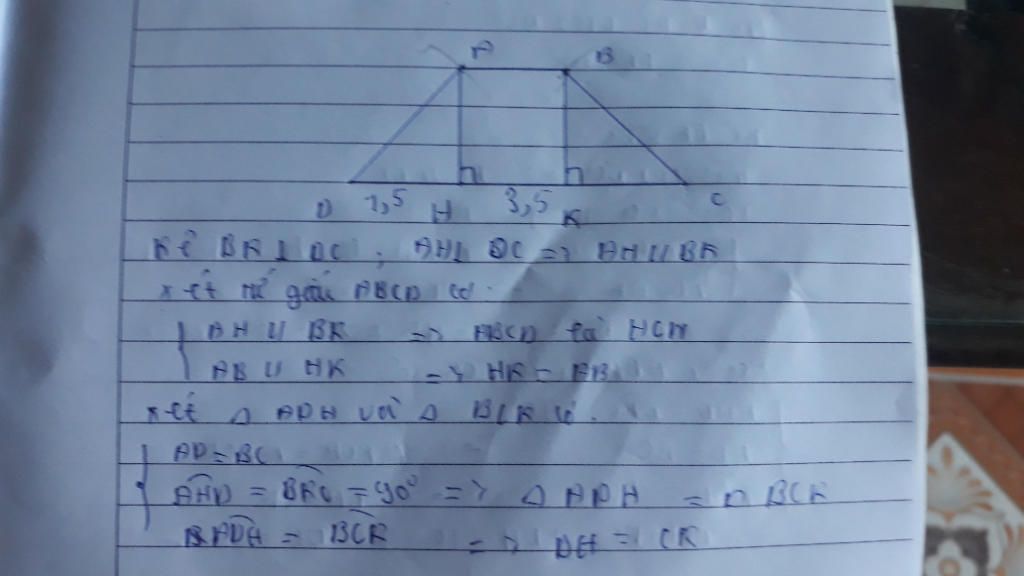 A B
D 1,5 H 3,5 K C
Kẻ BK ⊥ DC ; AH ⊥ DC => AH // BK
xét tứ giác ABCD có
{ AH // BK => ABCD là HCN
AB // HK => HK = AB
xét Δ ADH và Δ BCK có
{ AD = BC
AHD = BKC = 90° => Δ ADH = Δ BCK
ADH = BCK => DH = CK